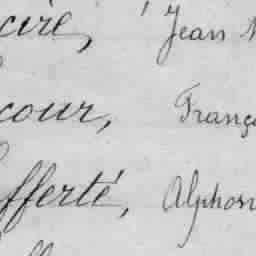 cire, Jean
cour, Franç
fferté, Alphon